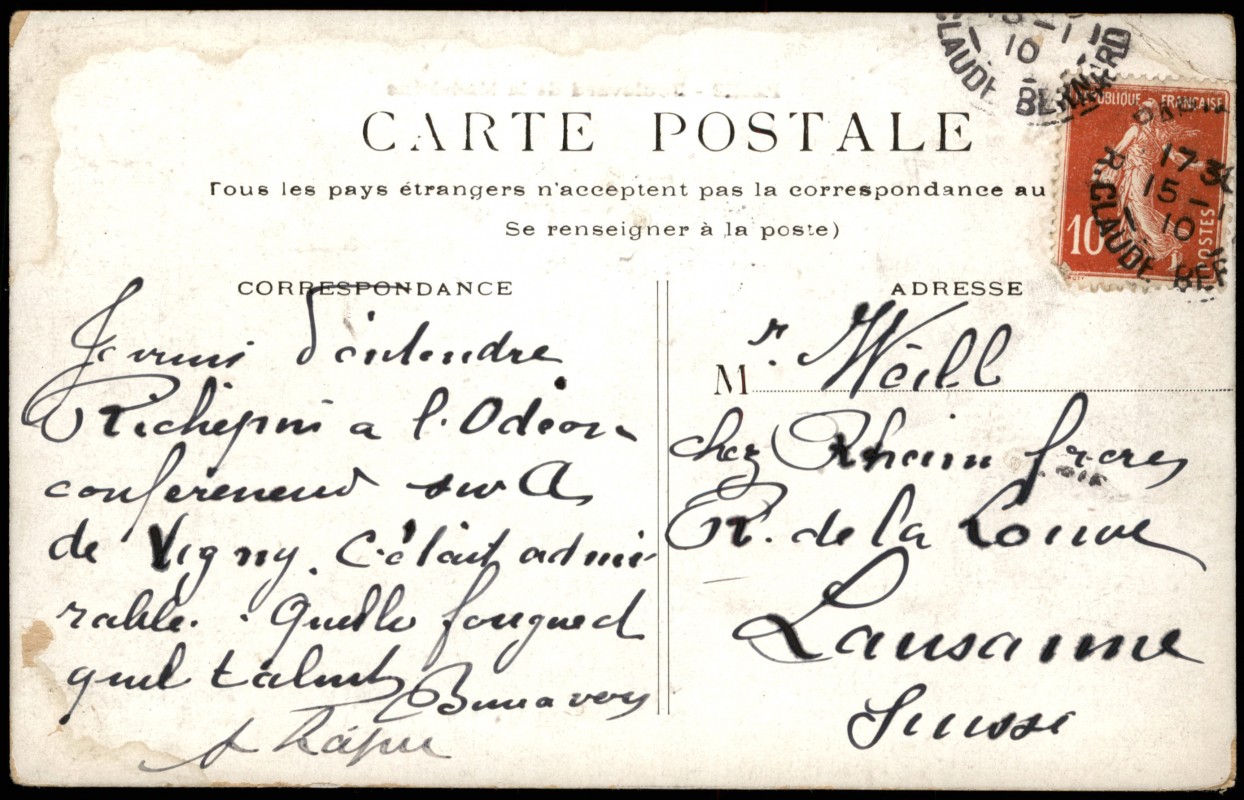 CLAUDE BERNARD
15 - 1
10
CARTE POSTALE
Tous les pays étrangers n'acceptent pas la correspondance au
Se renseigner à la poste)
RÉPUBLIQUE FRANÇAISE
POSTES
10
17 30
15 - 1
10
R. CLAUDE BER
CORRESPONDANCE
Je viens d'entendre
Richepin à l'Odéon
conférencier sur A
de Vigny. C'était admi-
rable. Quelle fougue et
quel talent
Bien à vous
ADRESSE
Mr. Weill
chez Rhein frères
R. de la Louve
Lausanne
Suisse